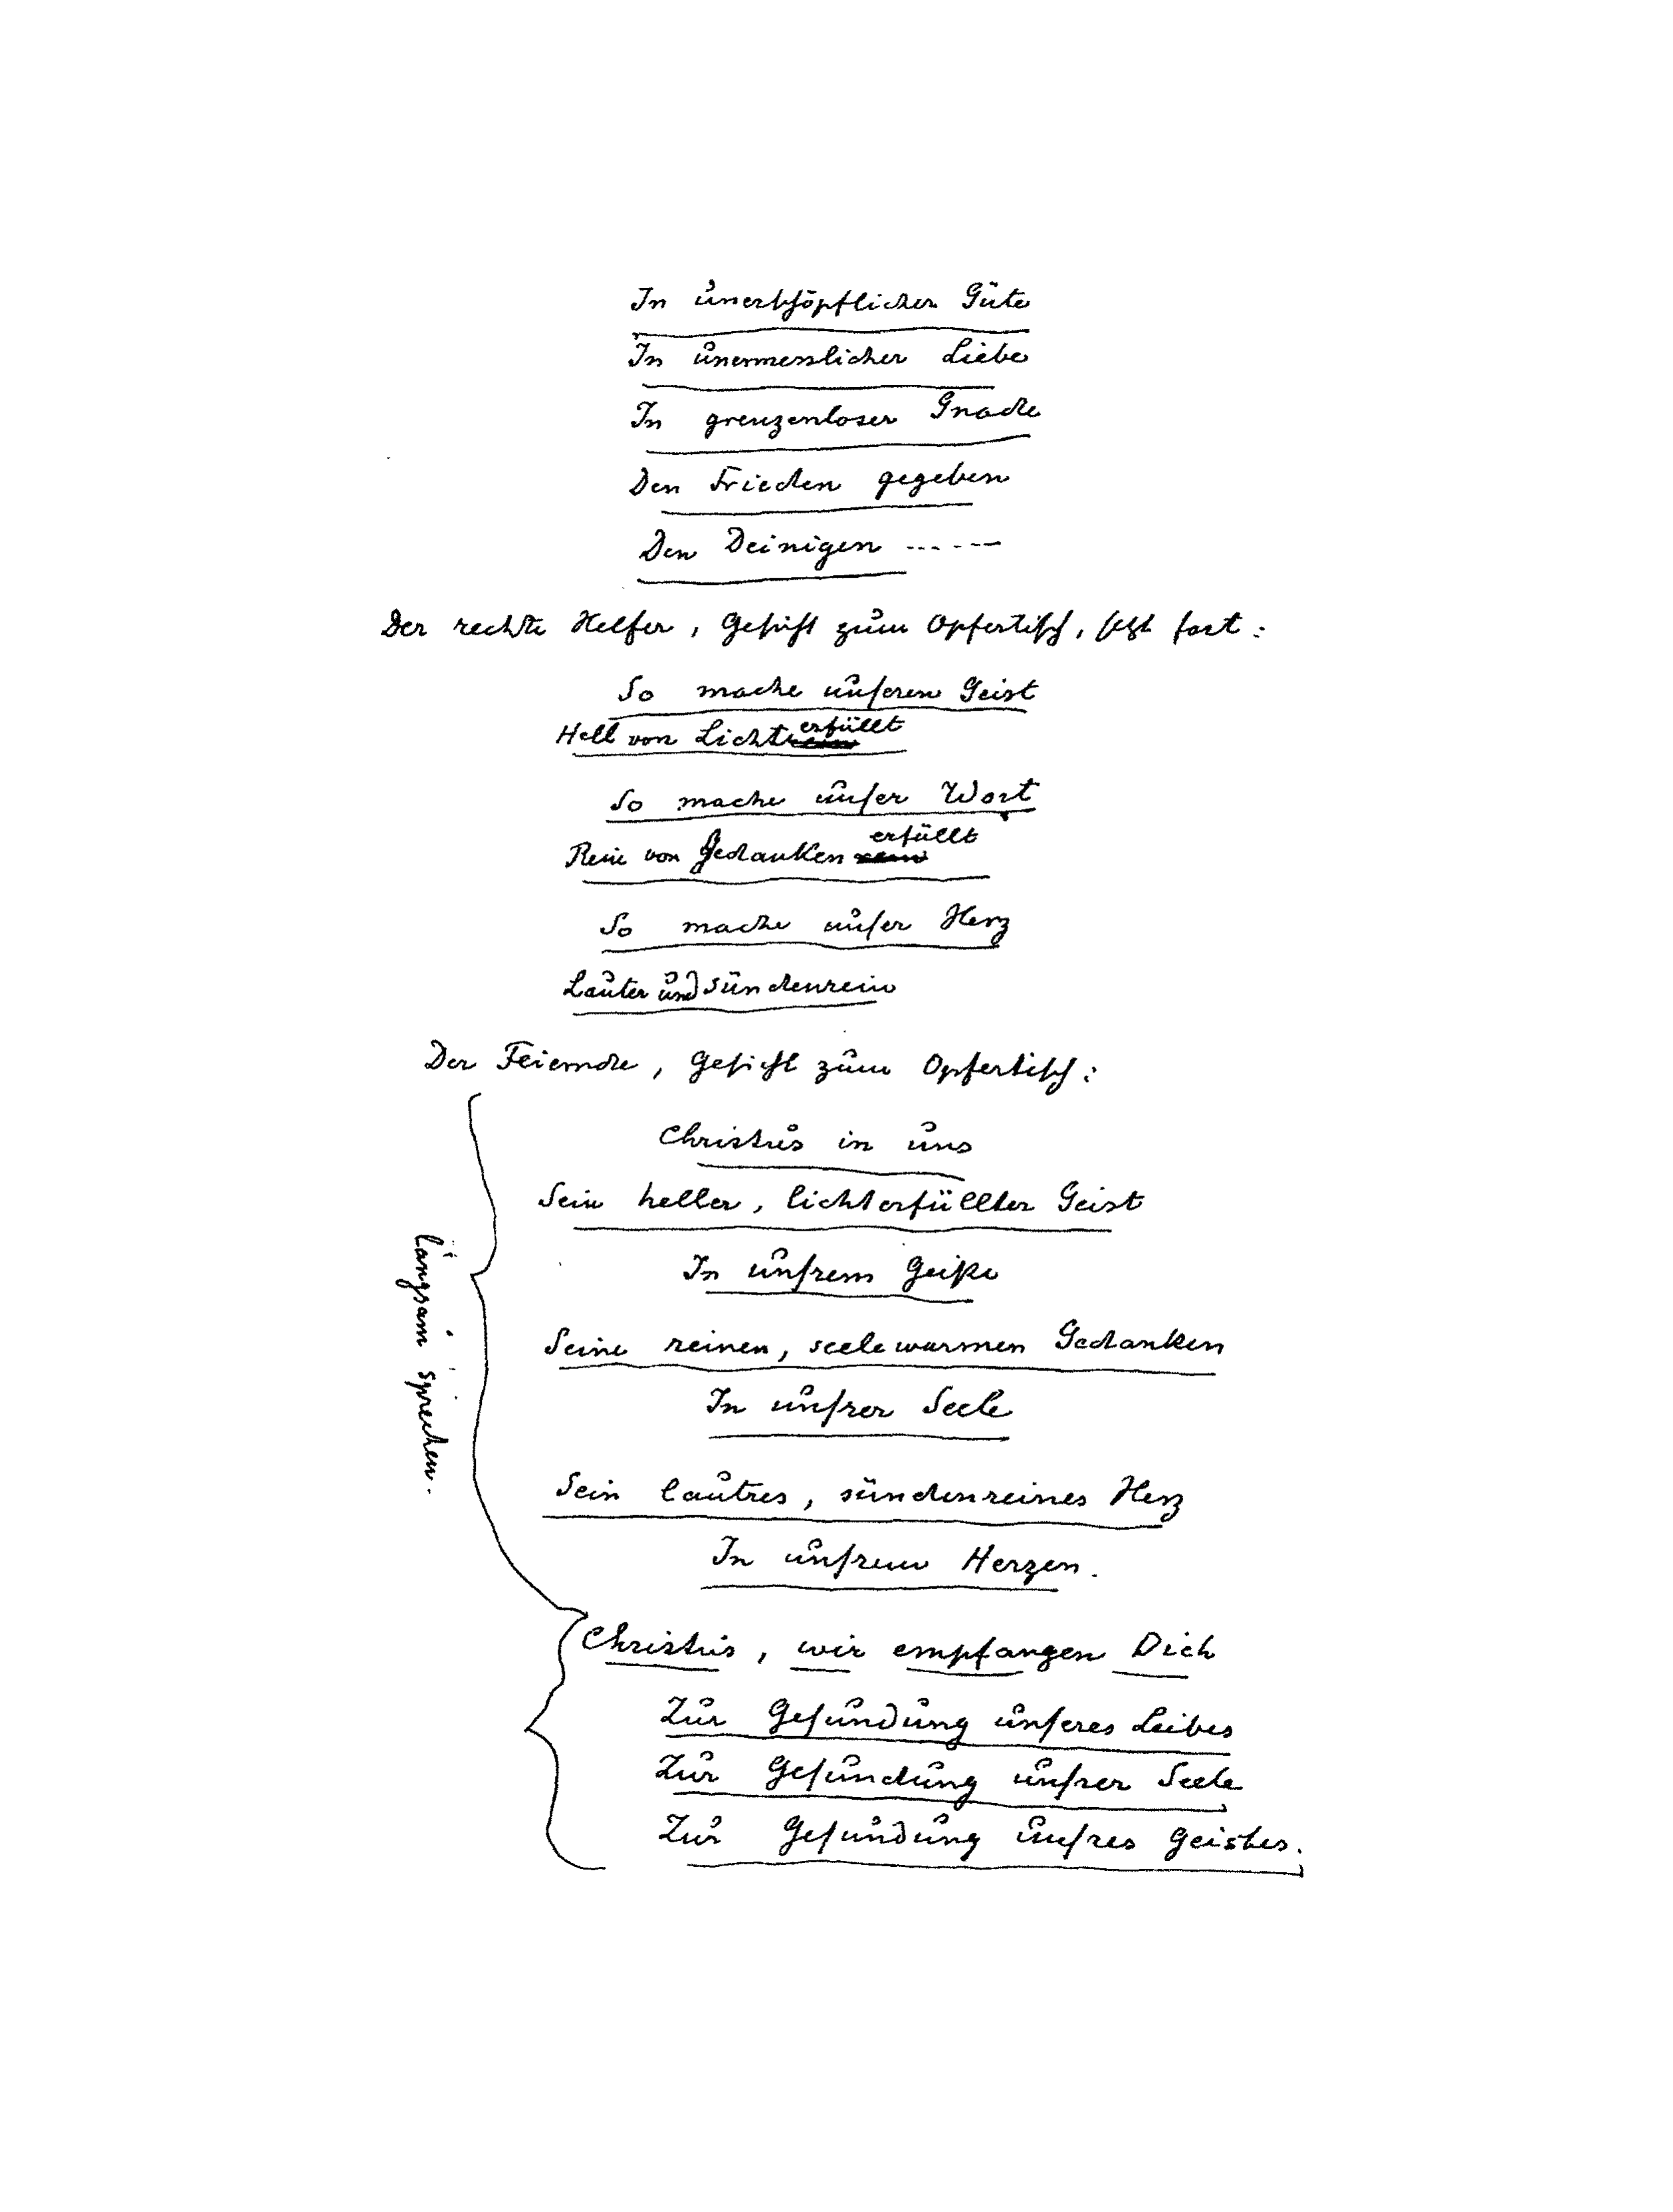 In unerschöpflicher Güte
In unermesslicher Liebe
In grenzenloser Gnade
Den Frieden gegeben
Den Deinigen ... - . —
Der rechte Helfer, Gesicht zum Opfertisch, setzt fort:
So mache unseren Geist
erfüllt
Hell von Licht
So mache unser Wort
erfüllt
Rein von Gedanken rein
So mache unser Herz
Lauter und sündenrein
Der Feiernde, Gesicht zum Opfertisch:
Christus in uns
Sein heller, lichterfüllter Geist
In unsrem Geiste
Seine reinen, seelewarmen Gedanken
In unsrer Seele
Sein lautres, sündenreines Herz
In unsrem Herzen.
langsam sprechen.
Christus, wir empfangen Dich
Zur Gesundung unseres Leibes
Zur Gesundung unsrer Seele
Zur Gesundung unsres Geistes.